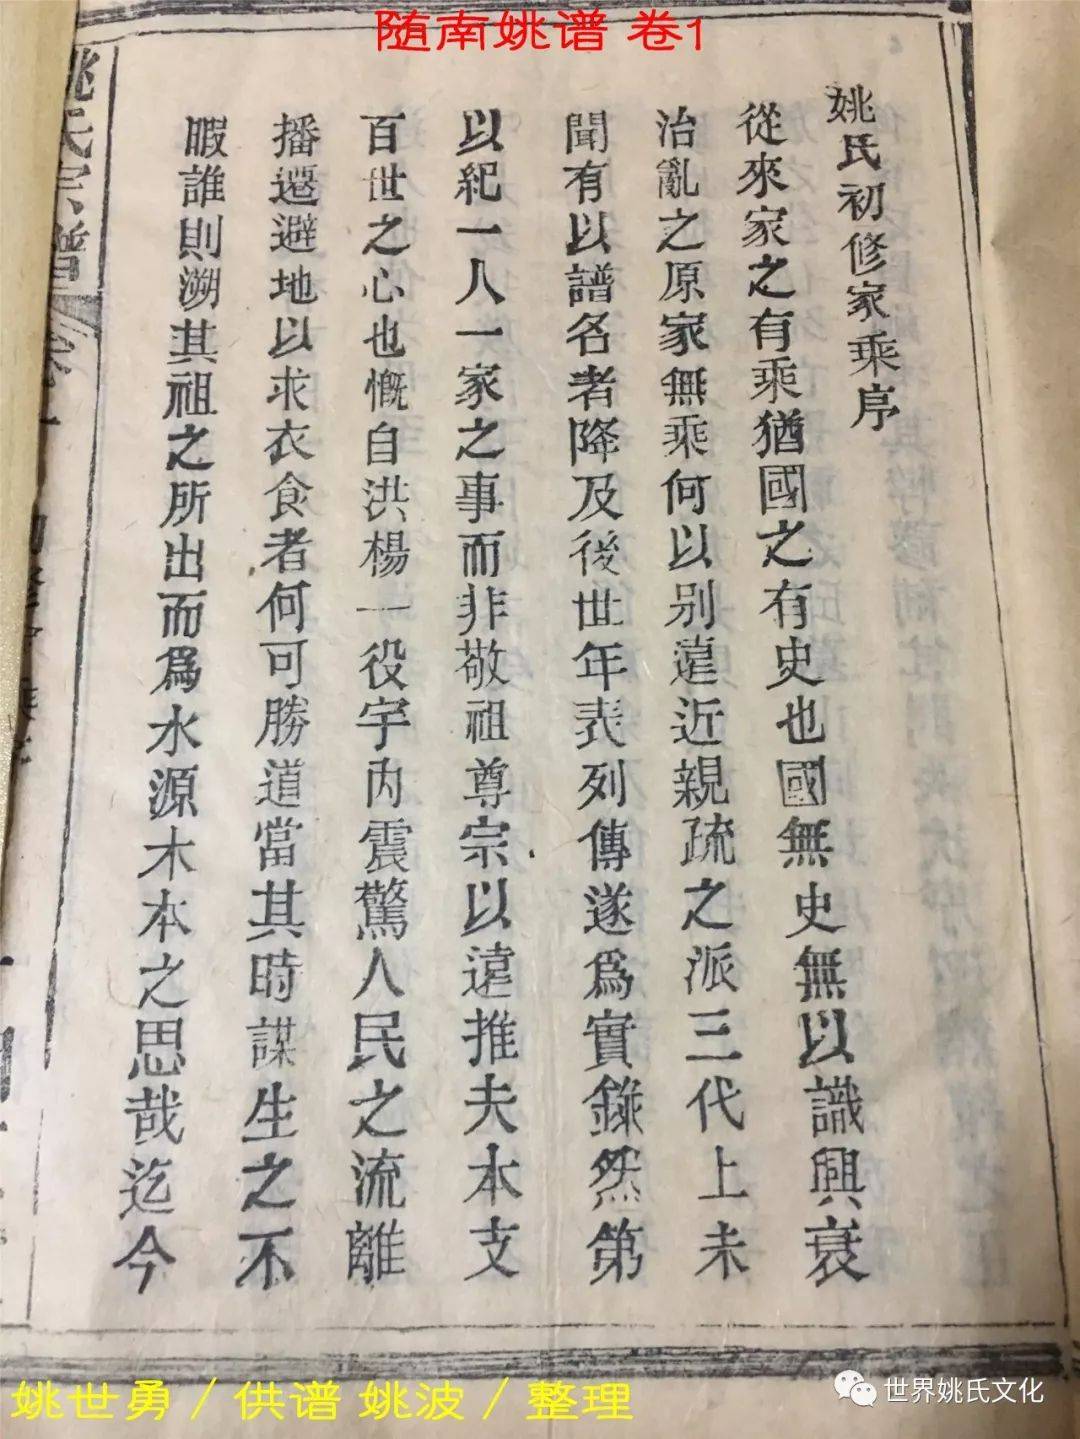 随南姚谱 卷1
姚氏初修家乘序
從來家之有乘猶國之有史也國無史無以識興衰
治亂之原家無乘何以别遠近親疏之派三代上未
聞有以譜名者降及後世年表列傳遂爲實錄然第
以紀一人一家之事而非敬祖尊宗以遠推夫本支
百世之心也慨自洪楊一役宇内震驚人民之流離
播遷避地以求衣食者何可勝道當其時謀生之不
暇誰則溯其祖之所出而爲水源木本之思哉迄今
姚氏宗譜
姚世勇／供谱 姚波／整理
世界姚氏文化